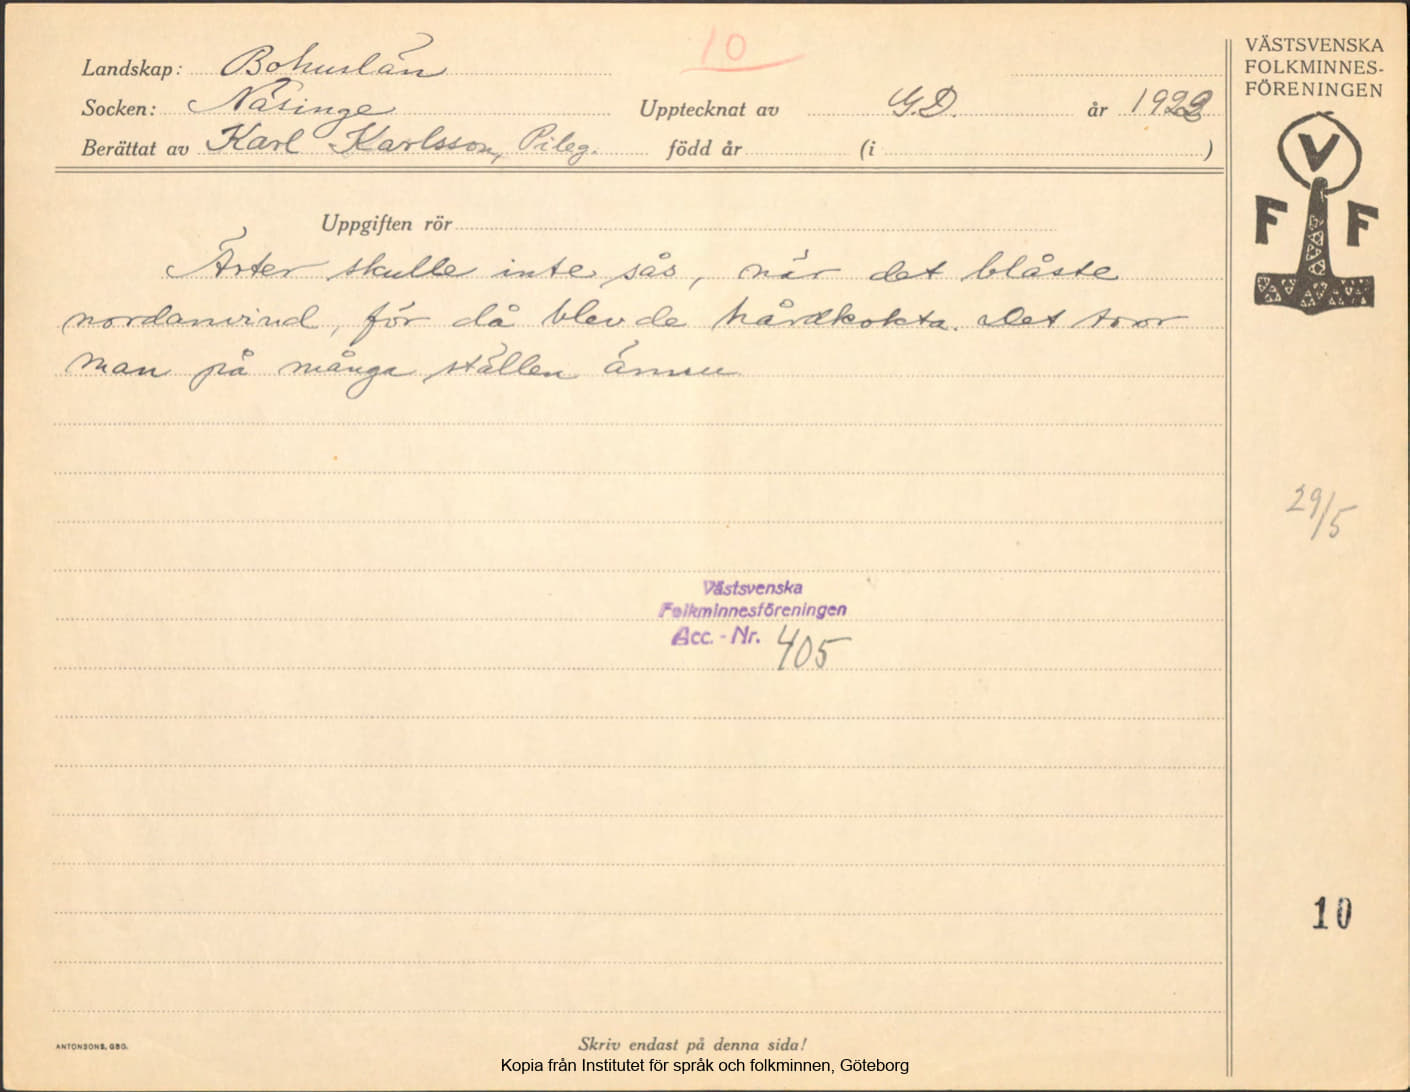 10
Landskap: Bohuslän
Socken: Näsinge
Upptecknat av G.D. år 1922
Berättat av Karl Karlsson, Pileg. född år (i )
VÄSTSVENSKA
FOLKMINNES-
FÖRENINGEN
V
F F
Uppgiften rör
Ärter skulle inte sås, när det blåste
nordanvind, för då blev de hårdkokta. Det tror
man på många ställen ännu
29/5
Västsvenska
Folkminnesföreningen
Acc. - Nr. 405
10
ANTONSONS, GBG.
Skriv endast på denna sida!
Kopia från Institutet för språk och folkminnen, Göteborg